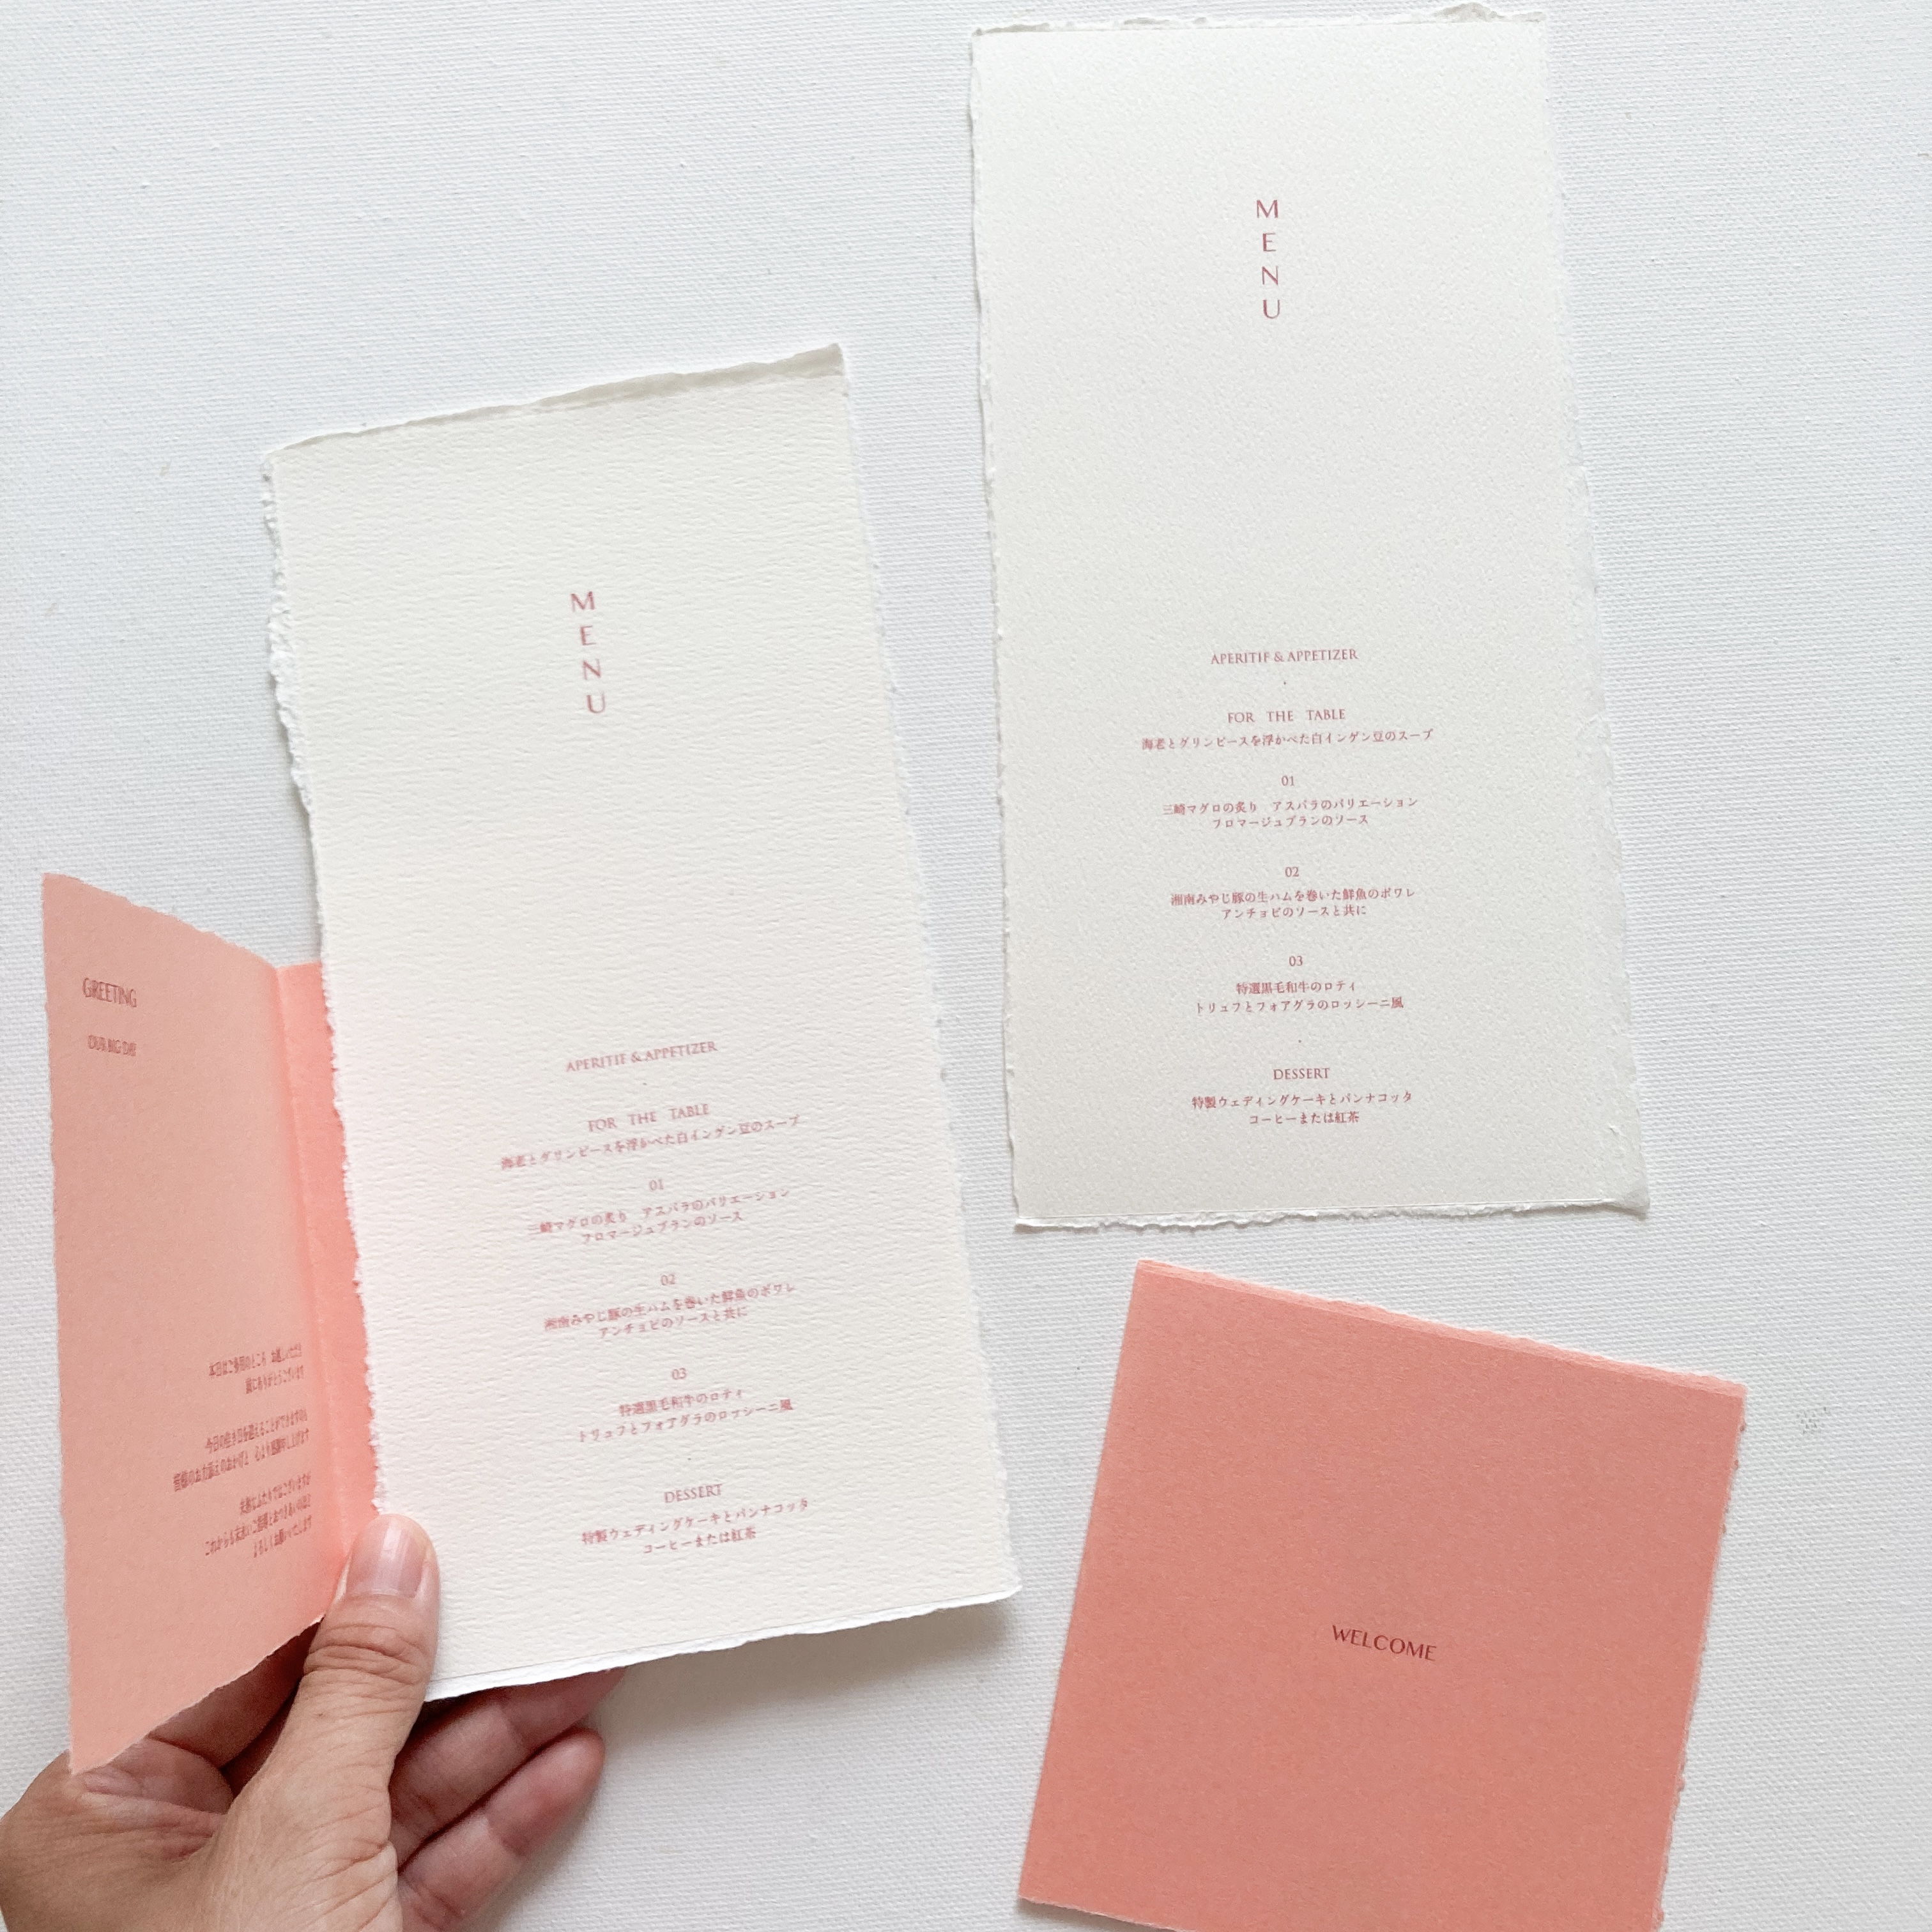 M
E
N
U
APERITIF & APPETIZER
FOR THE TABLE
海老とグリンピースを浮かべた白インゲン豆のスープ
01
三崎マグロの炙り アスパラのバリエーション
フロマージュブランのソース
02
湘南みやじ豚の生ハムを巻いた鮮魚のポワレ
アンチョビのソースと共に
03
特選黒毛和牛のロティ
トリュフとフォアグラのロッシーニ風
DESSERT
特製ウェディングケーキとパンナコッタ
コーヒーまたは紅茶
M
E
N
U
APERITIF & APPETIZER
FOR THE TABLE
海老とグリンピースを浮かべた白インゲン豆のスープ
01
三崎マグロの炙り アスパラのバリエーション
フロマージュブランのソース
02
湘南みやじ豚の生ハムを巻いた鮮魚のポワレ
アンチョビのソースと共に
03
特選黒毛和牛のロティ
トリュフとフォアグラのロッシーニ風
DESSERT
特製ウェディングケーキとパンナコッタ
コーヒーまたは紅茶
GREETING
本日はご多用のところ お越しいただき
誠にありがとうございます
今日の佳き日を迎えることができますのも
皆様のお力添えのおかげと 心より感謝申し上げます
未熟なふたりではございますが
よろしくお願いいたします
WELCOME